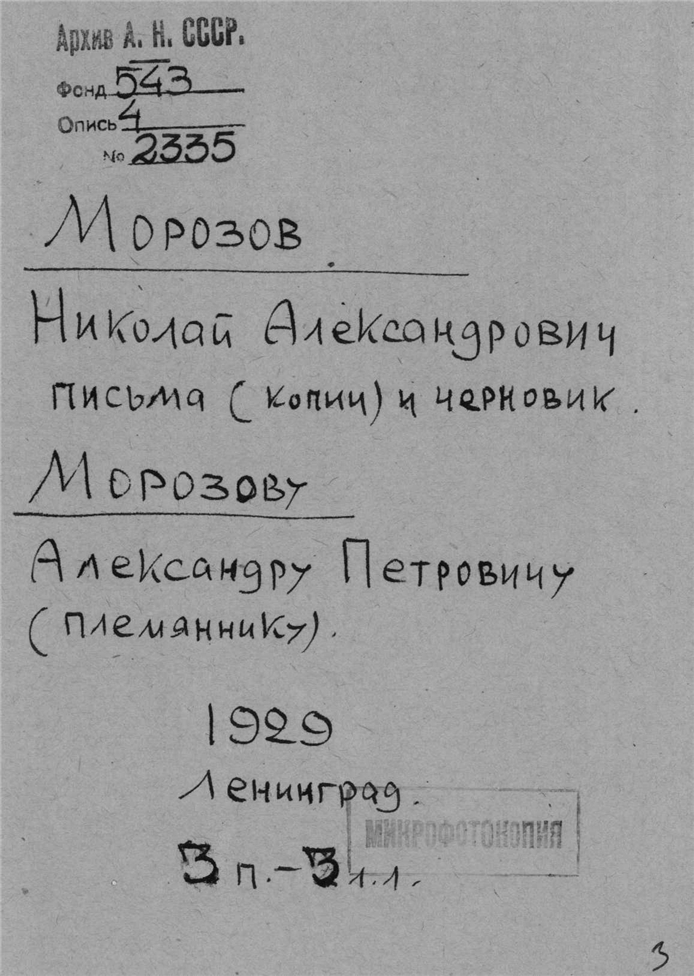 Архив А. Н. СССР.
Фонд 543
Опись 4
№ 2335
Морозов
Николай Александрович
письма (копии) и черновик.
Морозову
Александру Петровичу
(племяннику).
1929
Ленинград.
МИКРОФОТОКОПИЯ
3 п. – 3 л.л.
3